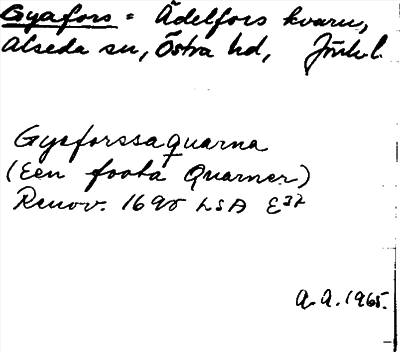 Gyafors = Ädelfors kvarn,
Alseda sn, Östra hd, Jönk.l.
Gyeforssaquarna
(Een foota Quarner)
Renov. 1695 LSA E37
A.A. 1965.